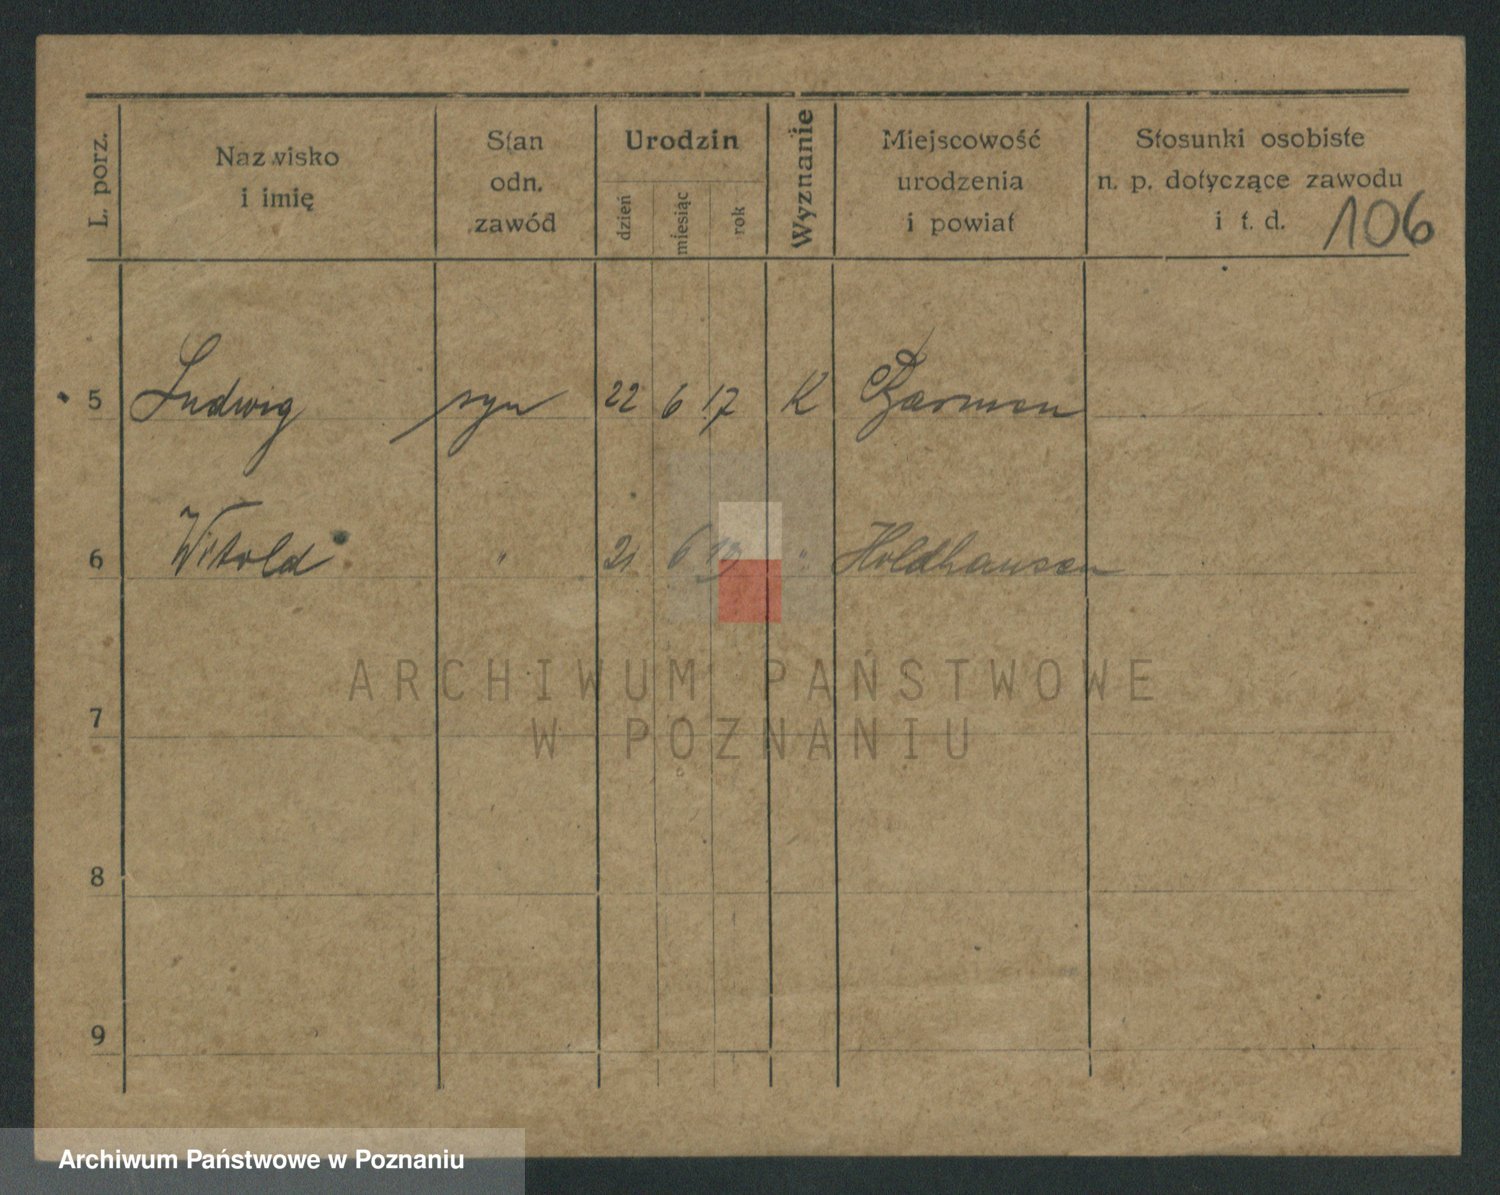 L. porz.
Nazwisko
i imię
Stan
odn.
zawód
Urodzin
dzień
miesiąc
rok
Wyznanie
Miejscowość
urodzenia
i powiat
Stosunki osobiste
n. p. dotyczące zawodu
i t. d. 106
5 Ludwig syn 22 6 17 K Barmen
6 Witold " 21 6 " Holdhausen
7
8
9
ARCHIWUM PAŃSTWOWE
W POZNANIU
Archiwum Państwowe w Poznaniu